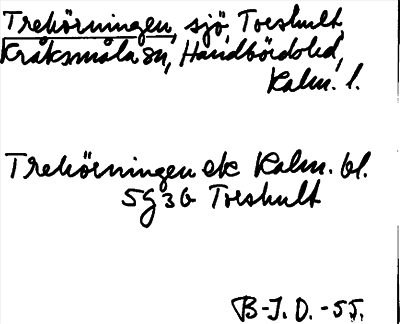 Trehörningen, sjö, Toeshult,
Kråksmåla sn, Handbörds hd,
Kalm. l.
Trehörningen ek Kalm. bl.
5G3b Toeshult
B-I.O. -55.